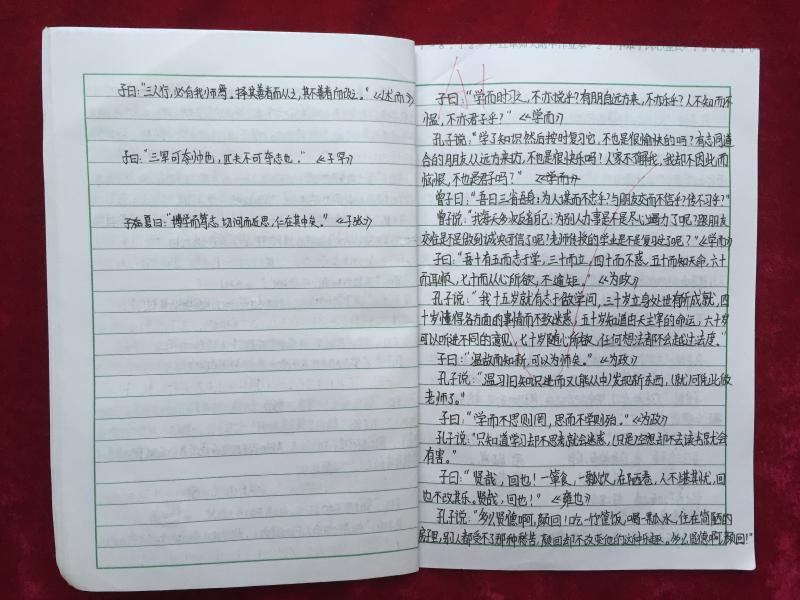 子曰：“三人行，必有我师焉。择其善者而从之，其不善者而改之。”《述而》
子曰：“三军可夺帅也，匹夫不可夺志也。”《子罕》
子夏曰：“博学而笃志，切问而近思，仁在其中矣。”《子张》
子曰：“学而时习之，不亦说乎？有朋自远方来，不亦乐乎？人不知而不
愠，不亦君子乎？”《学而》
孔子说：“学了知识然后按时复习它，不也是很愉快的吗？有志同道
合的朋友从远方来访，不也是很快乐吗？人家不了解我，我却不因此而
恼恨，不也是君子吗？”《学而》
曾子曰：“吾日三省吾身：为人谋而不忠乎？与朋友交而不信乎？传不习乎？”
曾子说：“我每天多次反省自己：为别人办事是不是尽心竭力了呢？跟朋友
交往是不是做到诚实守信了呢？老师传授的学业是不是复习过了呢？”《学而》
子曰：“吾十有五而志于学，三十而立，四十而不惑，五十而知天命，六十
而耳顺，七十而从心所欲，不逾矩。”《为政》
孔子说：“我十五岁就有志于做学问，三十岁立身处世有所成就，四
十岁懂得各方面的事情而不致迷惑，五十岁知道由天主宰的命运，六十岁
可以听进不同的意见，七十岁随心所欲，任何想法都不会越过法度。”
子曰：“温故而知新，可以为师矣。”《为政》
孔子说：“温习旧知识进而又(能从中)发现新东西，(就)可凭此做
老师了。”
子曰：“学而不思则罔，思而不学则殆。”《为政》
孔子说：“只知道学习却不思考就会迷惑，(只是)空想却不去读书就会
有害。”
子曰：“贤哉，回也！一箪食，一瓢饮，在陋巷，人不堪其忧，回
也不改其乐。贤哉，回也！”《雍也》
孔子说：“多么贤德啊，颜回！吃一竹筐饭，喝一瓢水，住在简陋的
房子里，别人都受不了那种愁苦，颜回却不改变他的这种乐趣。多么贤德啊，颜回！”